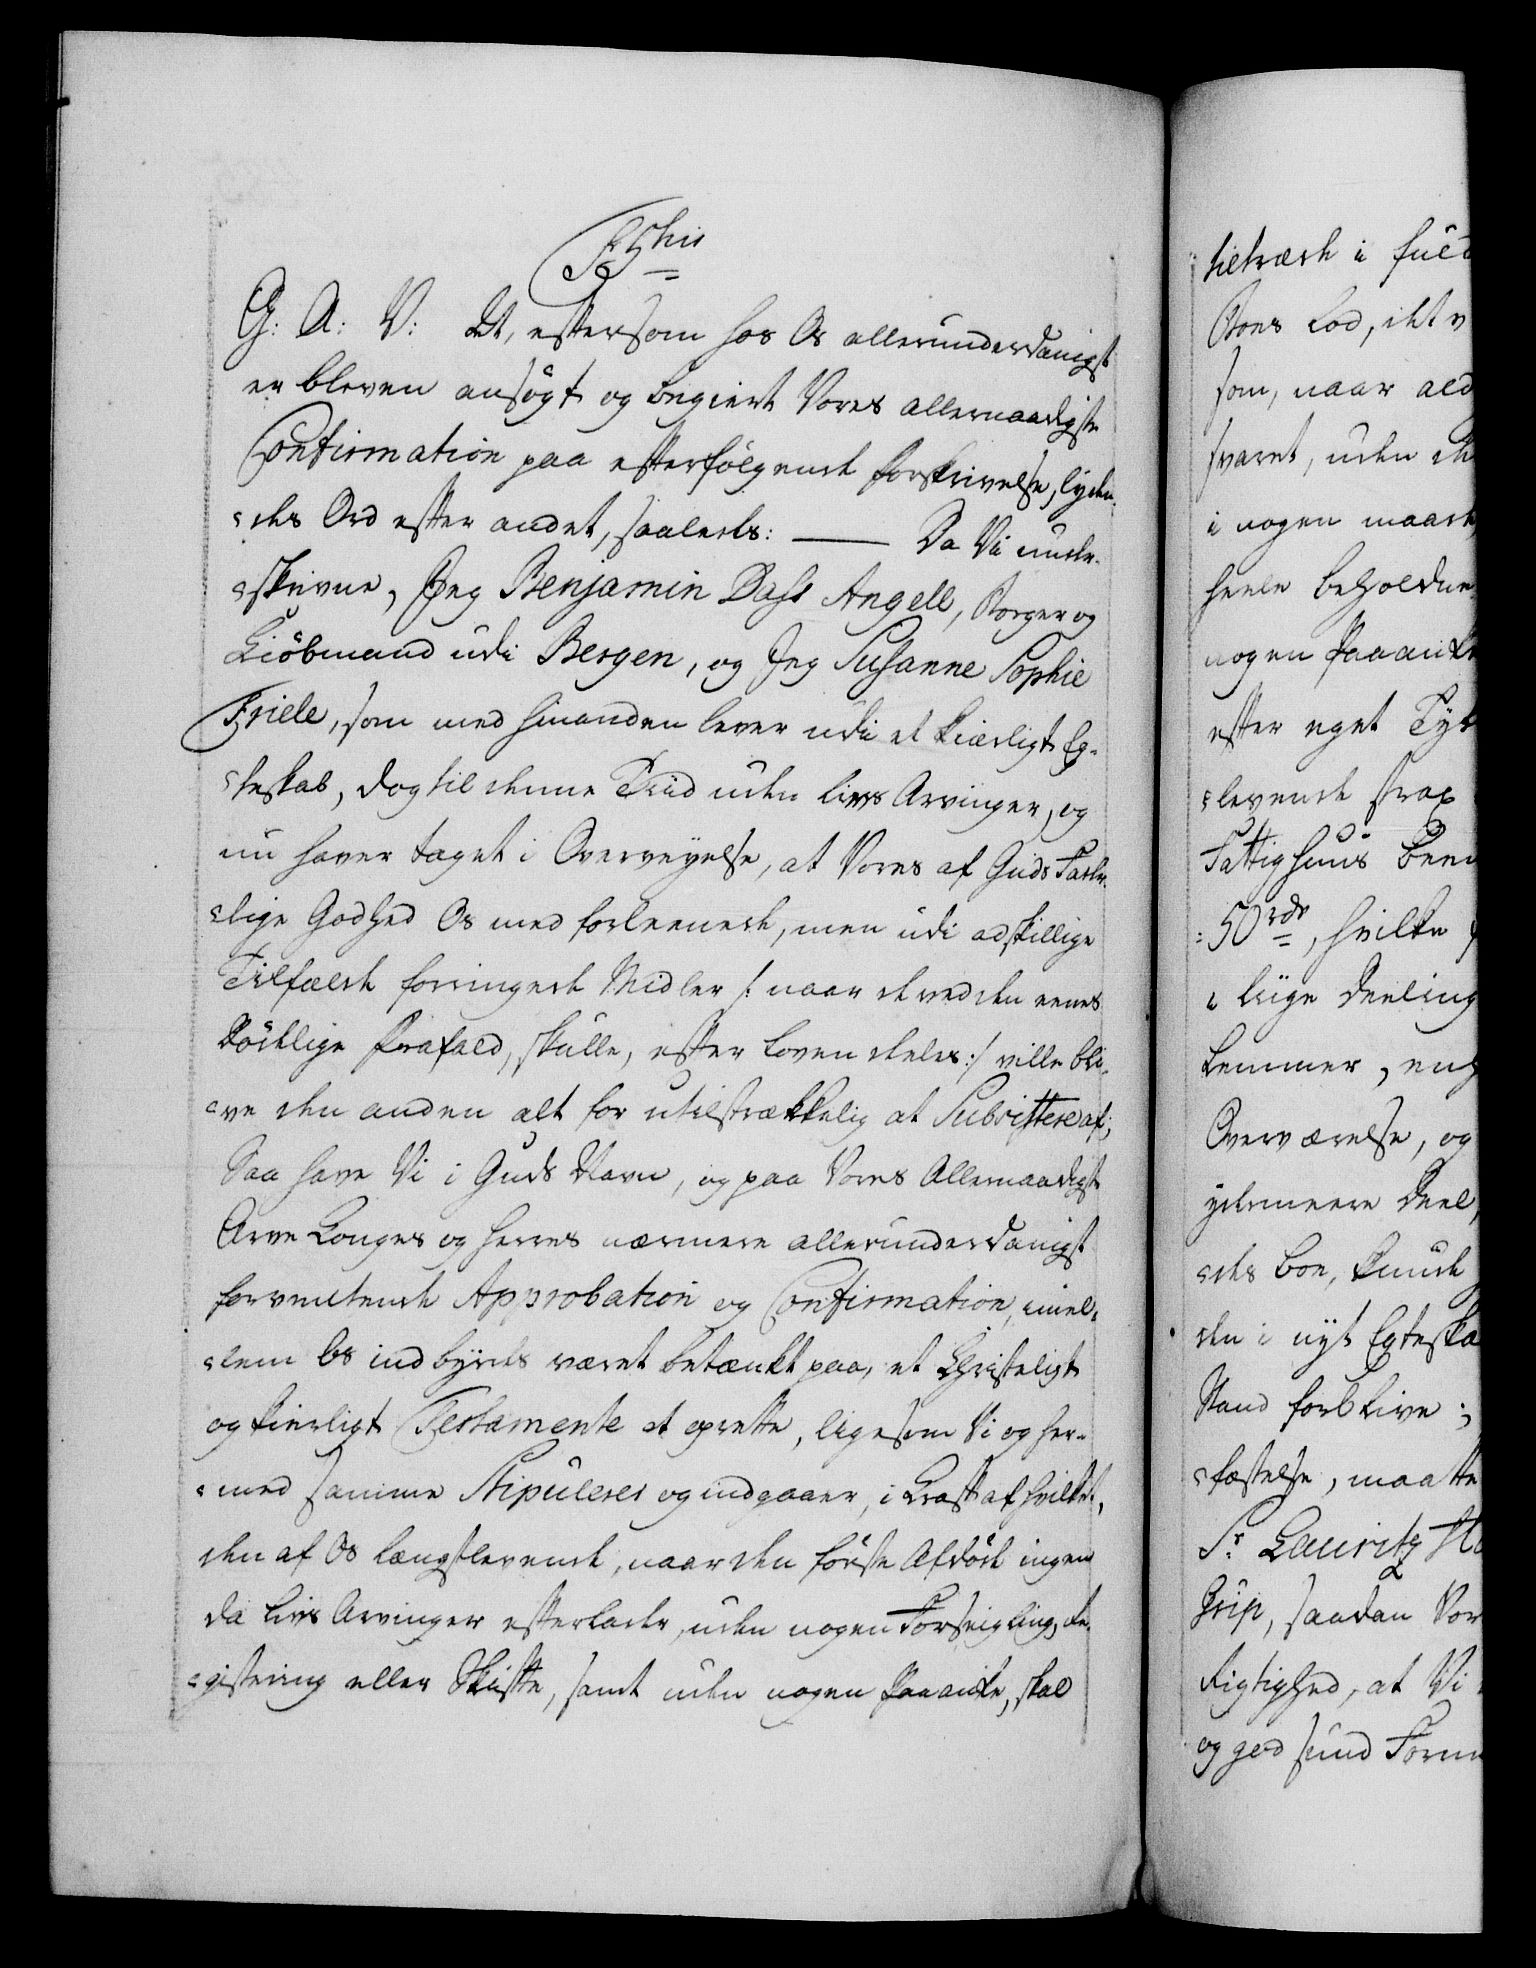 G: A: V: Vt, eftersom hos Os allerunderdanigst
er bleven ansögt og begiert Vores allernaadigste
Confirmation paa efterfölgende Forskrivelse, lyden-
-des Ord efter andet, saaledes: — Da Vi under-
-skrevne, Jeg Benjamin Dass Angell, Borger og
Kiöbmand udi Bergen, og Jeg Susanne Sophie
Friele, som med hinanden lever udi et kierligt Eg-
-teskab, dog til denne Tiid uden Livs Arvinger, og
nu haver taget i Overveyelse, at Vores af Guds Fader-
-lige Godhed Os med forleenede, men udi adskillige
Tilfælde forringede Midler /: naar de ved den eenes
Dödelige Frafald, skulle, efter Loven deeles :/ ville bli-
-ve den anden alt for utilstrækkelig at Subsistere af;
Saa have Vi i Guds Navn, og paa Vores Allernaadigste
Arve Konges og Herres nærmere allerunderdanigst
forventende Approbation og Confirmation, imel-
-lem Os indbyrdes været betænkt paa, et Christeligt
og kierligt Testamente at oprette, ligesom Vi og her-
-med samme Stipulerer og indgaaer, i Kraft af hvilket,
den af Os længstlevende, naar den förste Afdöde ingen
da Livs Arvinger efterlader, uden nogen Forseigling, Re-
-gistering eller Skifte, samt uden nogen Paaanke, skal
tiltræde i fuld
Boens Lod, det v
som, naar ald
svaret, uden de
i nogen maade,
heele beholdne
nogen Paaanke
efter eget Tyk
-levende strax
Fattighuus Ben
50 rdr, hvilke
i liige Deeling
kommer, eng
Overværelse, og
ydermeere Deel,
-des Boe, kunde
den i nyt Egteska
Stand forblive;
-fæstelse, maatte
Sr. Lauritz Ho
Grip, saadan Vor
Rigtighed, at Vi
og god sund Fornu